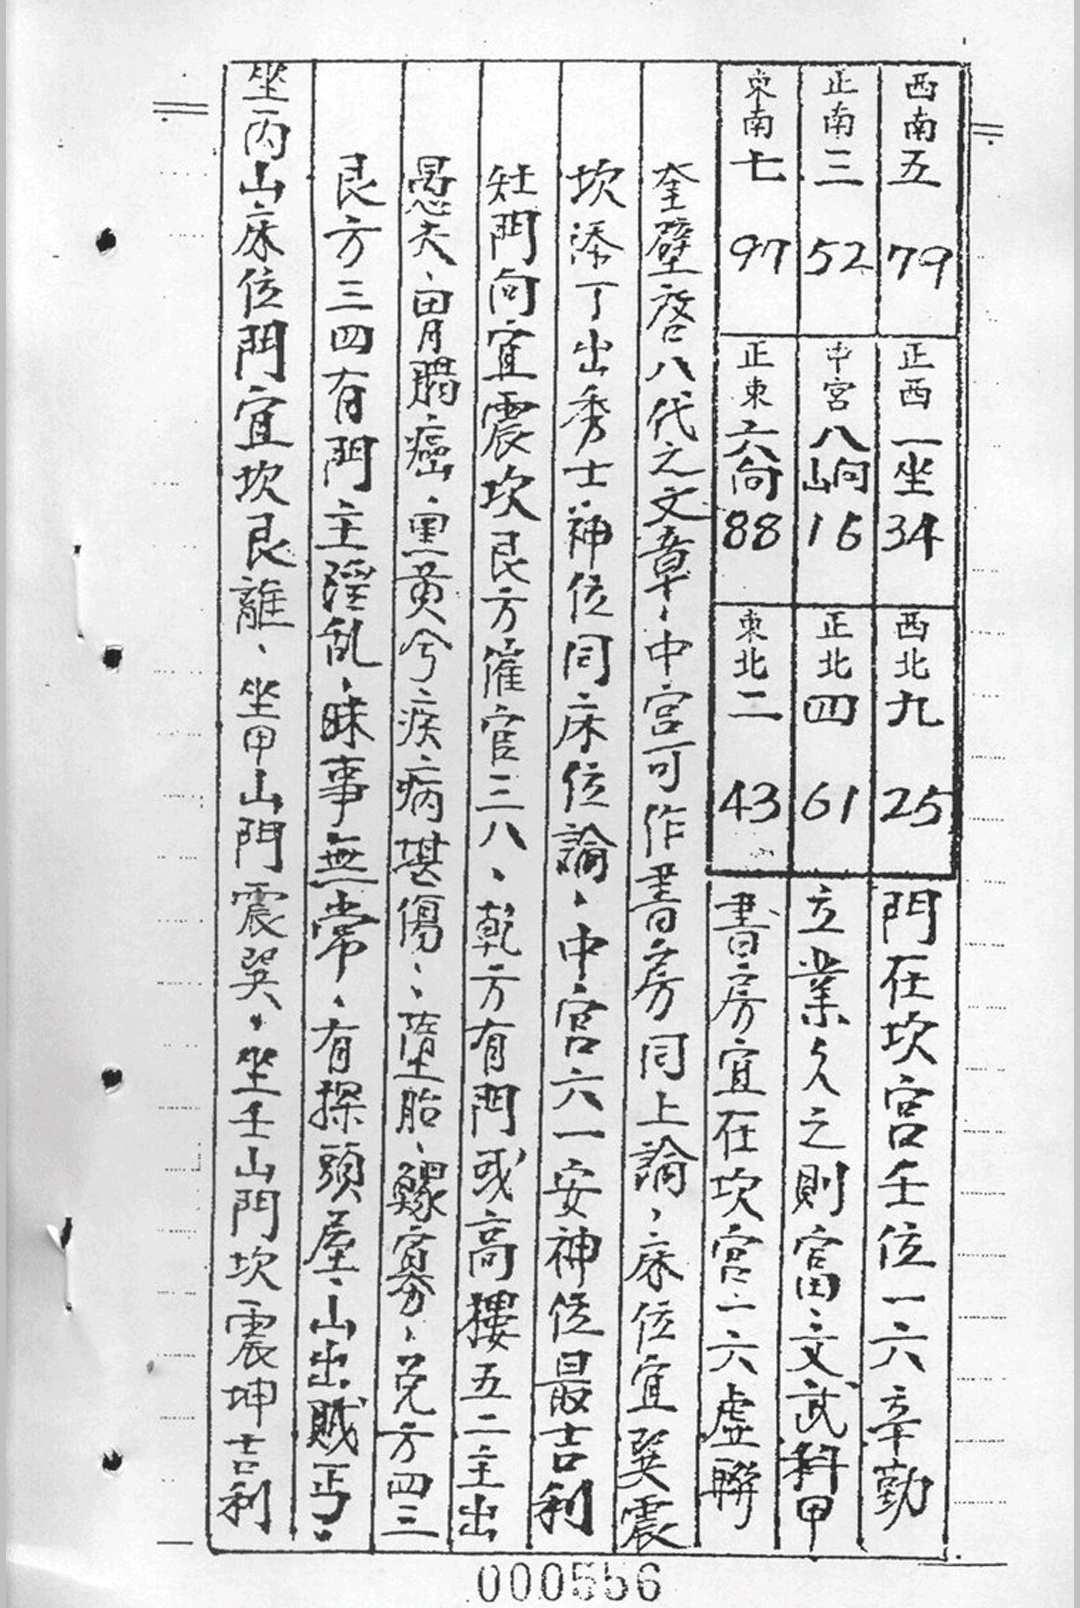 西南五 79
正西一坐 34
西北九 25
門在坎宮壬位一六辛勤
正南三 52
中宮八山向 16
正北四 61
立業久之則富文武科甲
東南七 97
正東六向 88
東北二 43
書房宜在坎宮一六虛聯
奎壁啓八代之文章、中宮可作書房同上論、床位宜巽震
坎添丁出秀士神位同床位論、中宮六一安神位最吉利
灶門向宜震坎艮方催官三八、乾方有門或高樓五二主出
愚夫、胃腸癌、黑黃兮疾病堪傷、墮胎、鰥寡、兌方四三
艮方三四有門主淫乱、昧事無常、有探頭屋、山出賊丐。
坐丙山床位門宜坎艮離、坐甲山門震巽、坐壬山門坎震坤吉利
000556